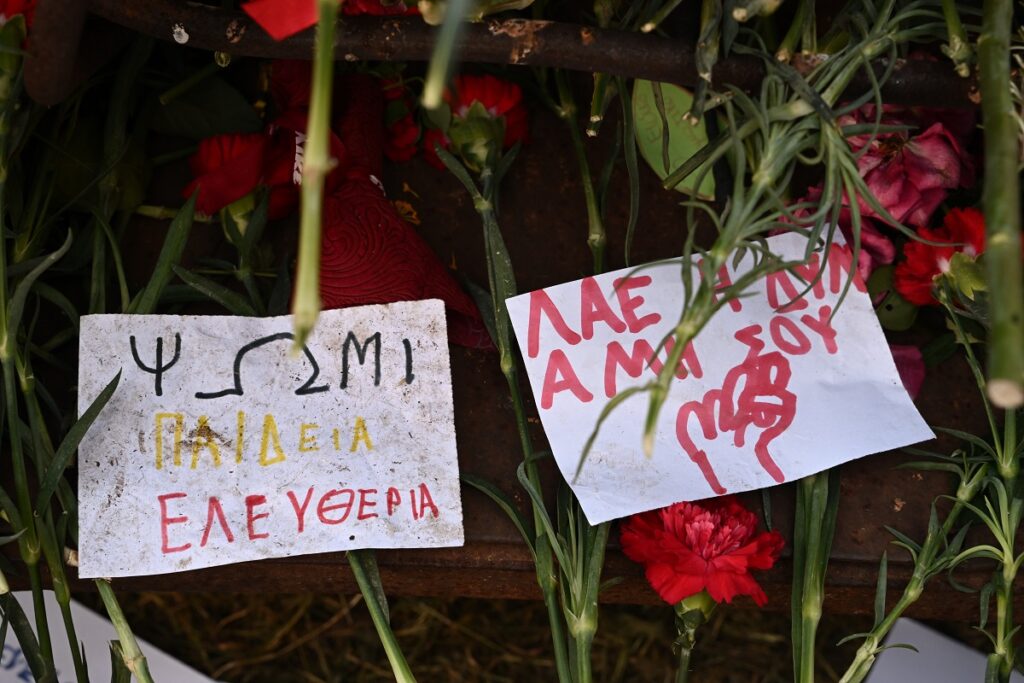 ΨΩΣΜΙ
ΠΑΙΔεια
ΕΛΕΥΘΕΡΙΑ
ΛΑΕ Η ΔΥΝ
ΑΜΗ ΣΟΥ